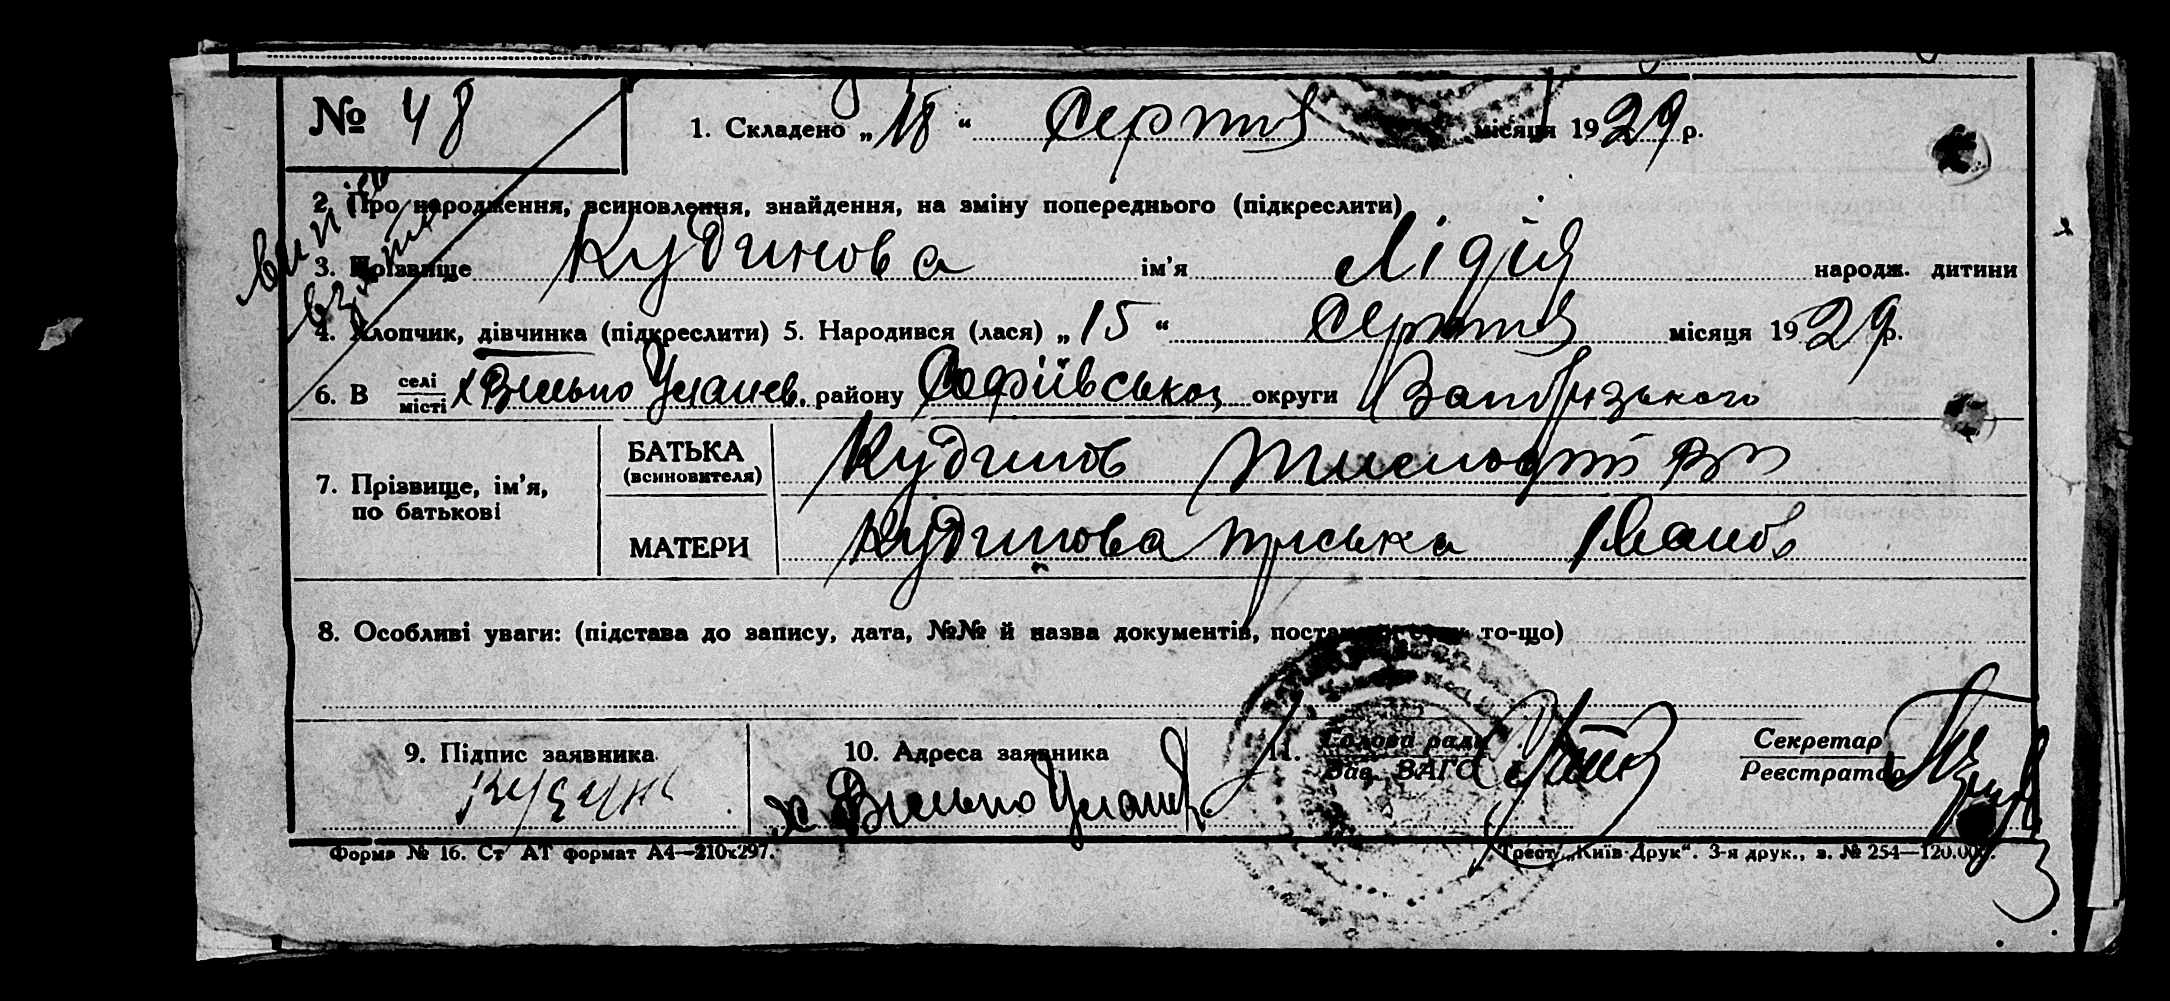 № 48
1. Складено „18“ Серпня місяця 1929 р.
2. Про народження, всиновлення, знайдення, на зміну попереднього (підкреслити)
3. Прізвище Кудинова ім'я Лідія народж. дитини
4. Хлопчик, дівчинка (підкреслити) 5. Народився (лася) „15“ Серпня місяця 1929 р.
6. В селі місті х Вільно Уланів. району Софіївської округи Запорізького
7. Прізвище, ім'я, по батькові
БАТЬКА (всиновителя) Кудинов
МАТЕРИ Кудинова Пріська Іванов
8. Особливі уваги: (підстава до запису, дата, №№ й назва документів, постанови суду то-що)
9. Підпис заявника
10. Адреса заявника
х Вільно Уланів
11. Голова ради
Зав. ВАГС
Секретар
Реєстратор
Форма № 16. Ст АТ формат А4—210х297.
Трест „Київ-Друк“. 3-я друк., з. № 254—120.000.